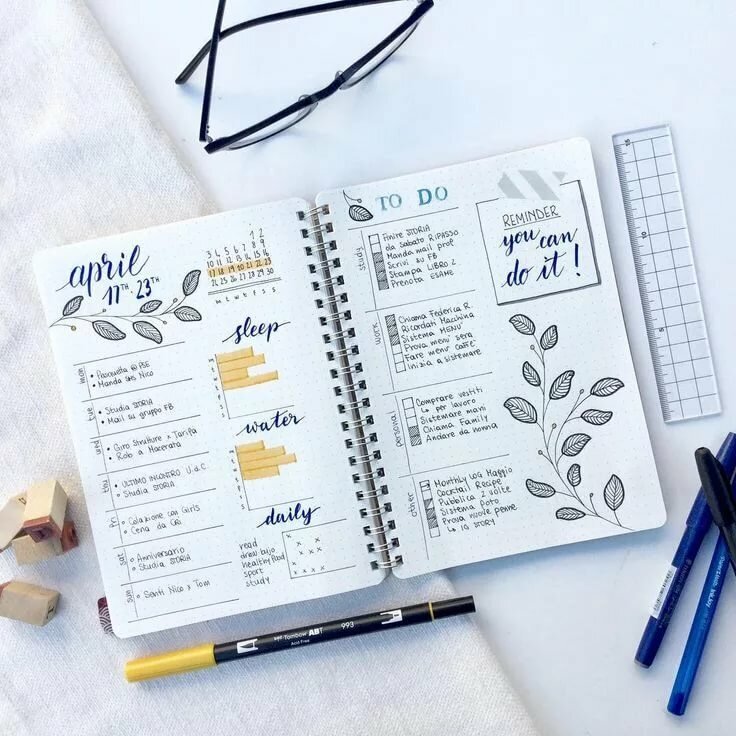 april
17TH-23TH
1 2
3 4 5 6 7 8 9
10 11 12 13 14 15 16
17 18 19 20 21 22 23
24 25 26 27 28 29 30
m t w t f s s
mon
• Pasquetta @ PSE
• Manda SMS Nico
tue
• Studia STORIA
• Mail su gruppo FB
wed
• Giro strutture x Taripa
• Rob a Macerata
thu
• ULTIMO INCONTRO U.d.C
• Studia STORIA
fri
• Colazione con Girls
• Cena da
sat
• Anniversario
• Studia STORIA
sun
• Senti Nico x Tom
sleep
m
t
w
t
f
s
s
water
m
t
w
t
f
s
s
daily
read
draw bujo
healthy food
sport
study
TO DO
study
Finire STORIA
da Sabato RIPASSO
Manda mail prof
Scrivi su FB
Stampa LIBRO 2
Prenota ESAME
work
Chiama Federica R.
Ricordati Macchina
Sistema MENU'
Prova menu sera
Fare menu caffe'
Inizia a sistemare
personal
Comprare vestiti
↳ per lavoro
Sistemare mani
Chiama Family
Andare da nonna
other
Monthly LOG Maggio
Cocktail Recipe
Pubblica 2 volte
Sistema Foto
Prova nuove penne
↳ IG STORY
REMINDER
you can
do it!
Tombow ABT
993
Acid-Free